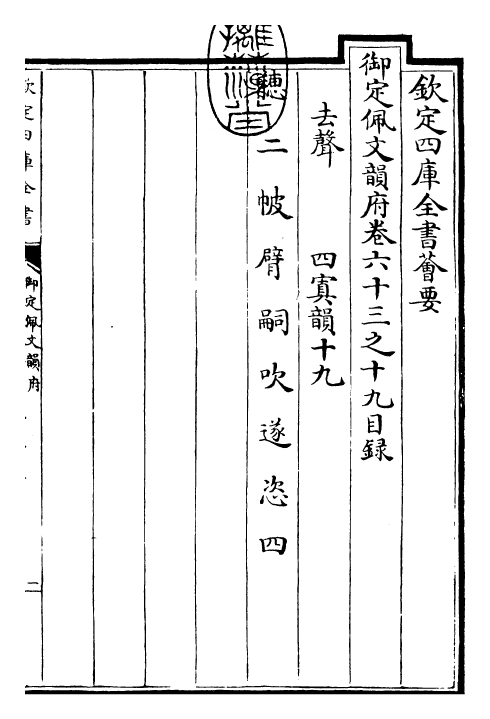 欽定四庫全書薈要
御定佩文韻府卷六十三之十九目録
去聲 四寘韻十九
二 帔 臂 嗣 吹 遂 恣 四
欽定四庫全書
御定佩文韻府
二